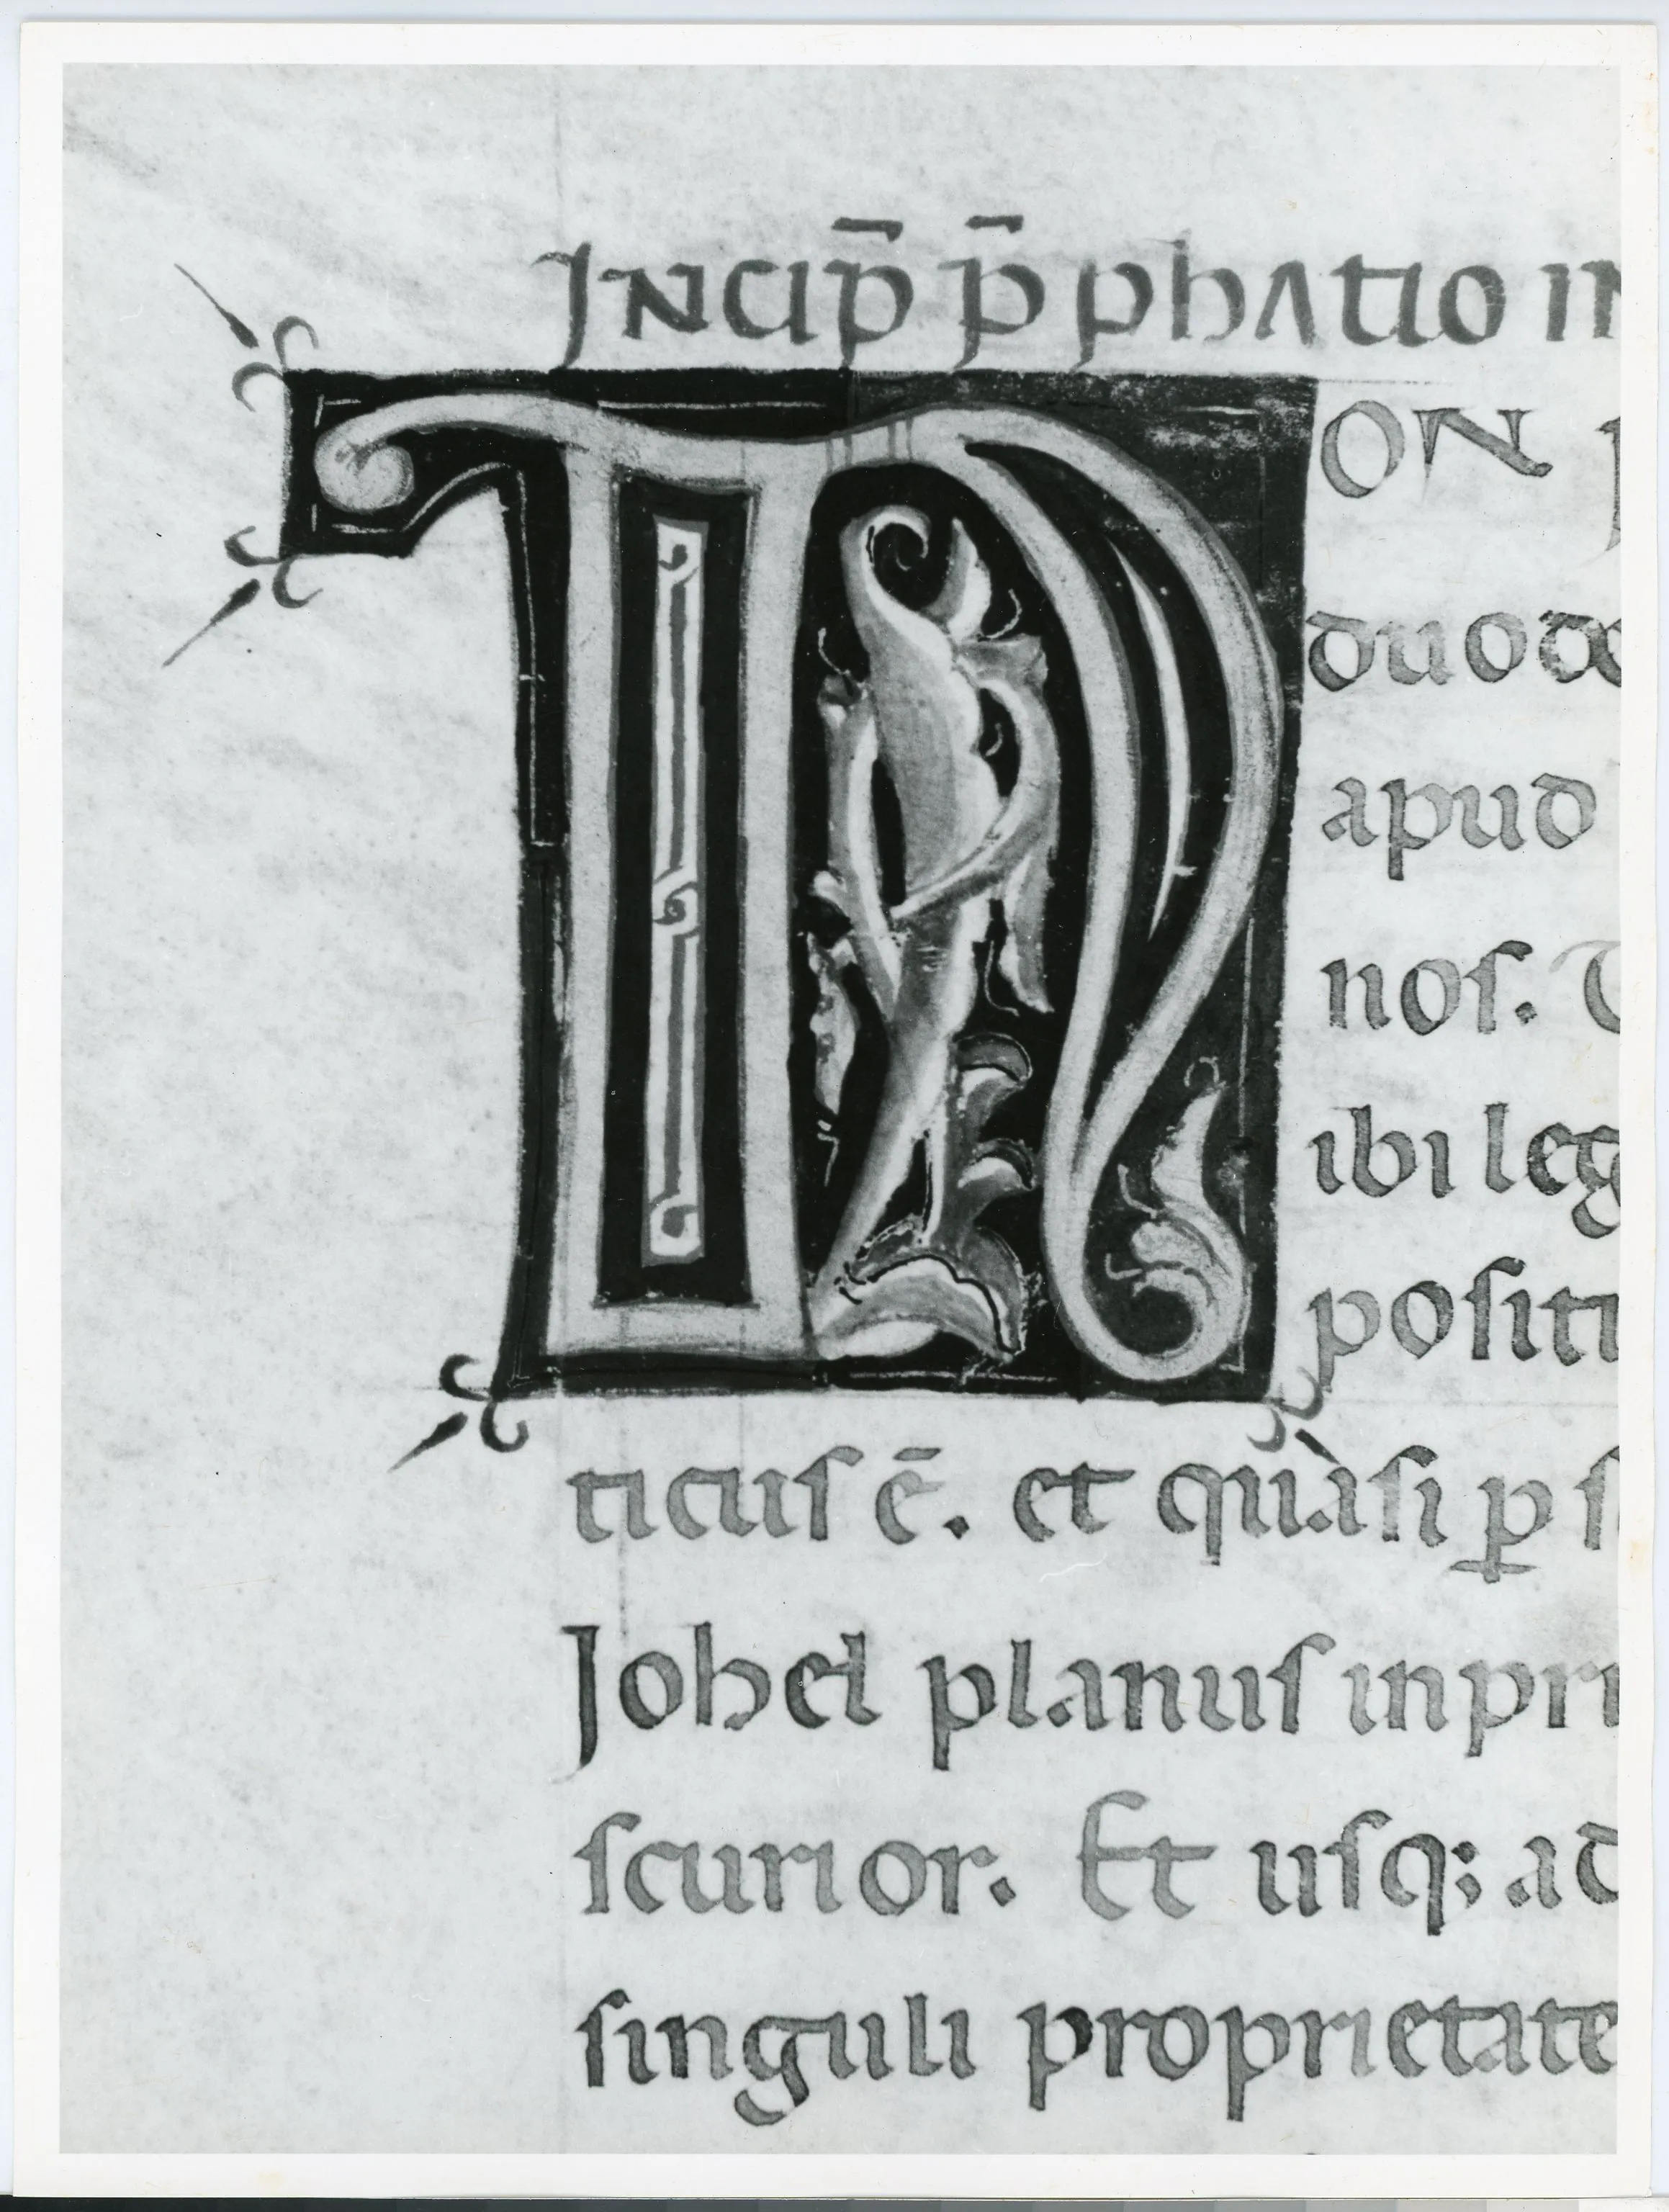 INCIP̄ P̄ PHATIO IN
NON
duode
apud
nos.
ibi leg
positi
ticus ē. et quàsi ꝑ s
Johel planus in pri
scurior. Et usq; ad
singuli proprietate